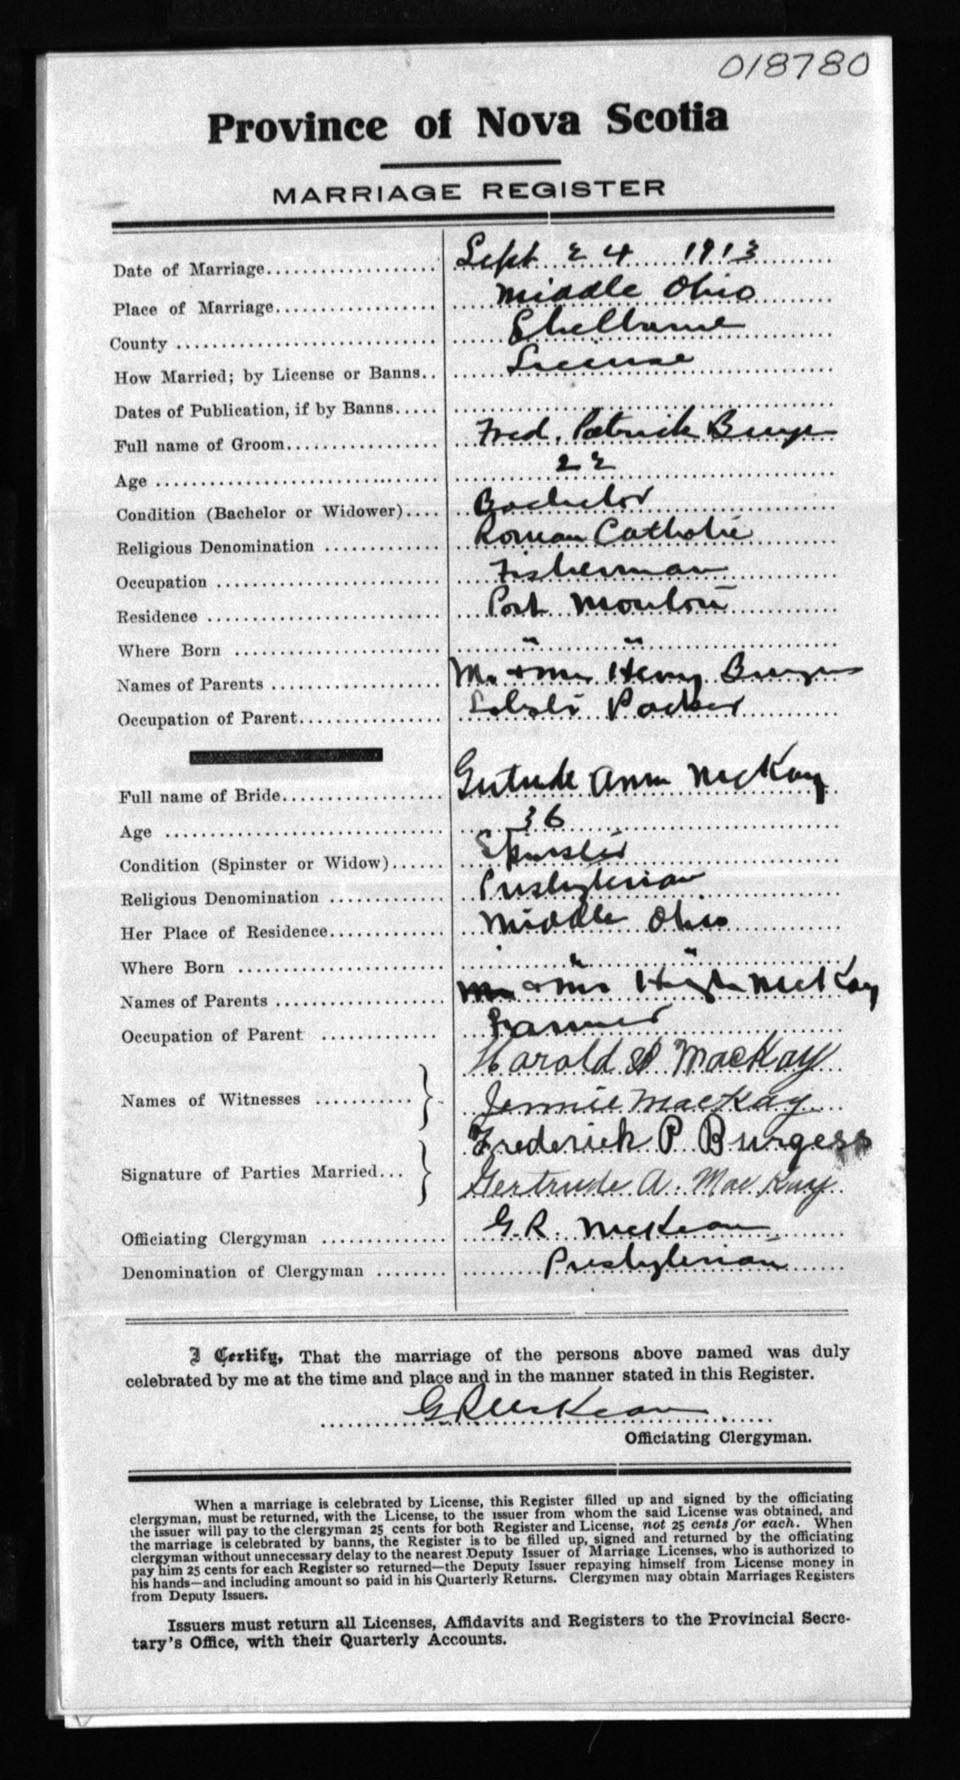 018780
Province of Nova Scotia
MARRIAGE REGISTER
Date of Marriage.................... Sept 24 1913
Place of Marriage.................. Middle Ohio
County ............................. Shelburne
How Married; by License or Banns.. License
Dates of Publication, if by Banns.....
Full name of Groom................. Fred. Patrick
Age ................................ 22
Condition (Bachelor or Widower).... Bachelor
Religious Denomination ............. Roman Catholic
Occupation ......................... Fisherman
Residence .......................... Port Mouton
Where Born ......................... " "
Names of Parents ................... Mr. & Mrs Henry Burgess
Occupation of Parent................ Packer
Full name of Bride.................. Gertrude Ann MacKay
Age ................................ 36
Condition (Spinster or Widow)...... Spinster
Religious Denomination ............. Presbyterian
Her Place of Residence............. Middle Ohio
Where Born ......................... " "
Names of Parents ................... Mr & Mrs Hugh MacKay
Occupation of Parent ............. Farmer
Names of Witnesses ........... } Harold MacKay
Jennie MacKay
Signature of Parties Married... } Frederick P Burgess
Gertrude A. MacKay
Officiating Clergyman ............. G.R. McKean
Denomination of Clergyman ........ Presbyterian
I Certify, That the marriage of the persons above named was duly
celebrated by me at the time and place and in the manner stated in this Register.
G R McKean
Officiating Clergyman.
When a marriage is celebrated by License, this Register filled up and signed by the officiating
clergyman, must be returned, with the License, to the issuer from whom the said License was obtained, and
the issuer will pay to the clergyman 25 cents for both Register and License, not 25 cents for each. When
the marriage is celebrated by banns, the Register is to be filled up, signed and returned by the officiating
clergyman without unnecessary delay to the nearest Deputy Issuer of Marriage Licenses, who is authorized to
pay him 25 cents for each Register so returned—the Deputy Issuer repaying himself from License money in
his hands—and including amount so paid in his Quarterly Returns. Clergymen may obtain Marriages Registers
from Deputy Issuers.
Issuers must return all Licenses, Affidavits and Registers to the Provincial Secre-
tary's Office, with their Quarterly Accounts.